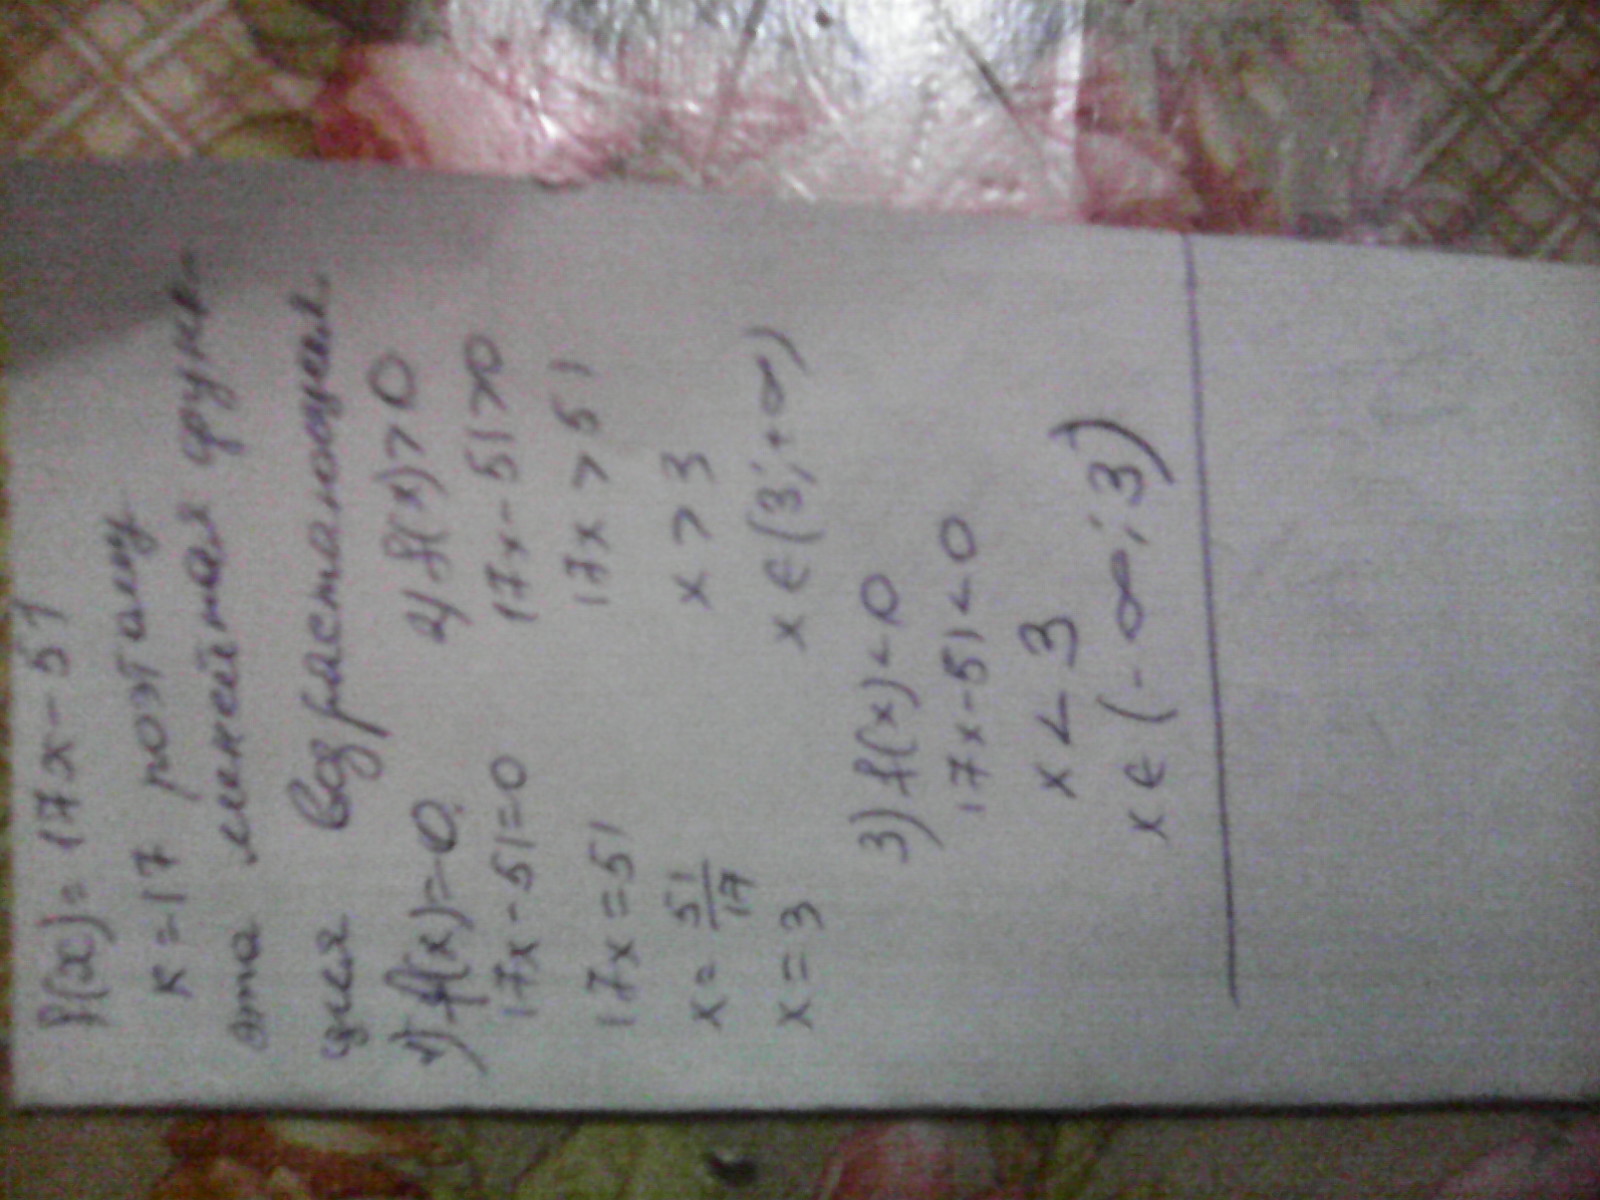 f(x)=17x-51
к=17 поэтому
эта линейная функ-
ция возрастающая.
1) f(x)=0.
17x-51=0
17x=51
x=51/17
x=3
2) f(x)>0
17x-51>0
17x>51
x>3
x∈(3;+∞)
3) f(x)<0
17x-51<0
x<3
x∈(-∞;3)